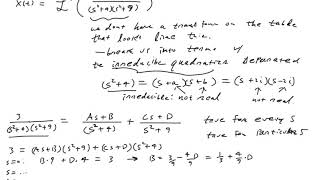 X(t) = L ( (s²+4)(s²+9) )
we dont have a transform on the table
that looks like this.
- break us into terms w/
the irreducible quadratics separated
(s²+4) = (s+a)(s+b) = (s+2i)(s-2i)
irreducible: not real
not real
3 / (s²+4)(s²+9) = As+B / s²+4 + Cs+D / s²+9
true for every s
true for particular s
3 = (As+B)(s²+9) + (Cs+D)(s²+4)
s=0: B·9 + D·4 = 3 → B = 3/9 - 4/9 D = 1/3 + 4/9 · D
s=...